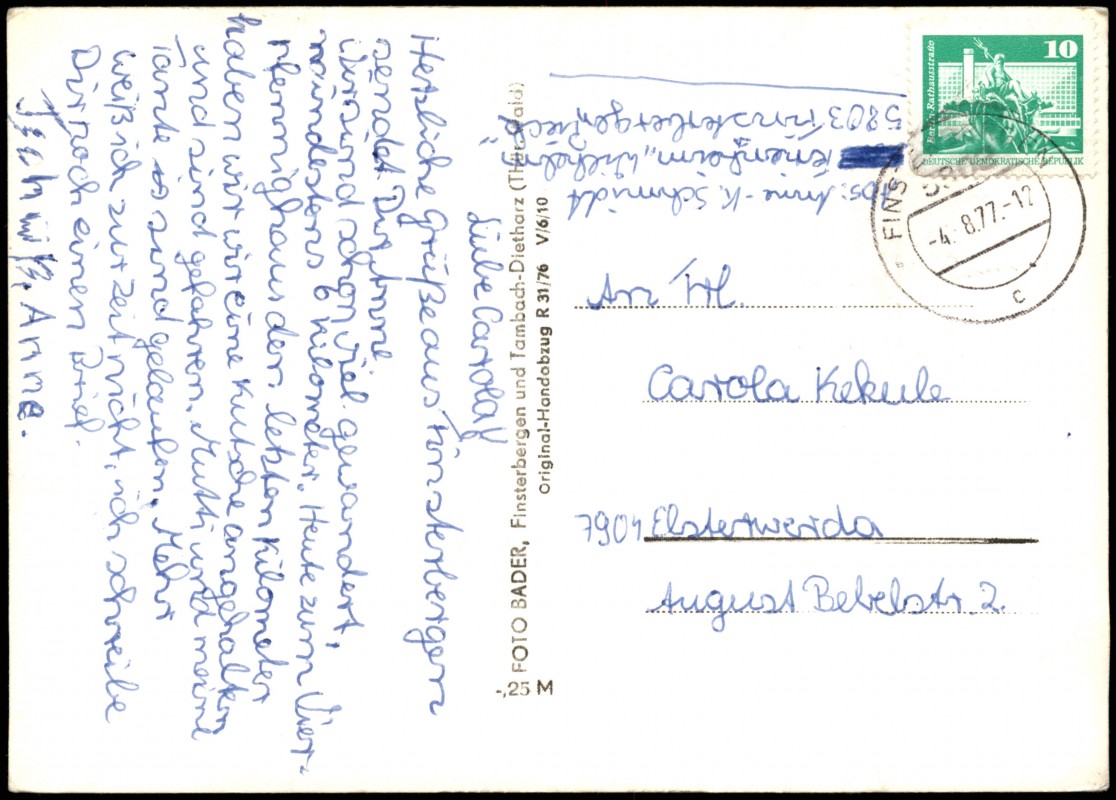 Liebe Carola!
Herzliche Grüße aus Finsterbergen
sendet Dir Anne
Wir sind schon viel gewandert,
mindestens 6 Kilometer. Heute zum Vier-
pfennighaus den letzten Kilometer
haben wir wir eine Kutsche angehalten
und sind gefahren. Mutti und meine
Tante sind gelaufen. Mehr
weiß ich zur Zeit nicht, ich schreibe
Dir noch einen Brief.
Anne.
FOTO BADER, Finsterbergen und Tambach-Dietharz (Thür. Wald)
Original-Handabzug R 31/76 V/6/10
-,25 M
Abs: Anne-K. Schmidt
Ferienheim „Wilhelm
5803 Finsterbergen
10
Berlin, Rathausstraße
DEUTSCHE DEMOKRATISCHE REPUBLIK
FINS
-4.8.77.-12
c
An Frl.
Carola Kekule
7904 Elsterwerda
August Bebelstr. 2.